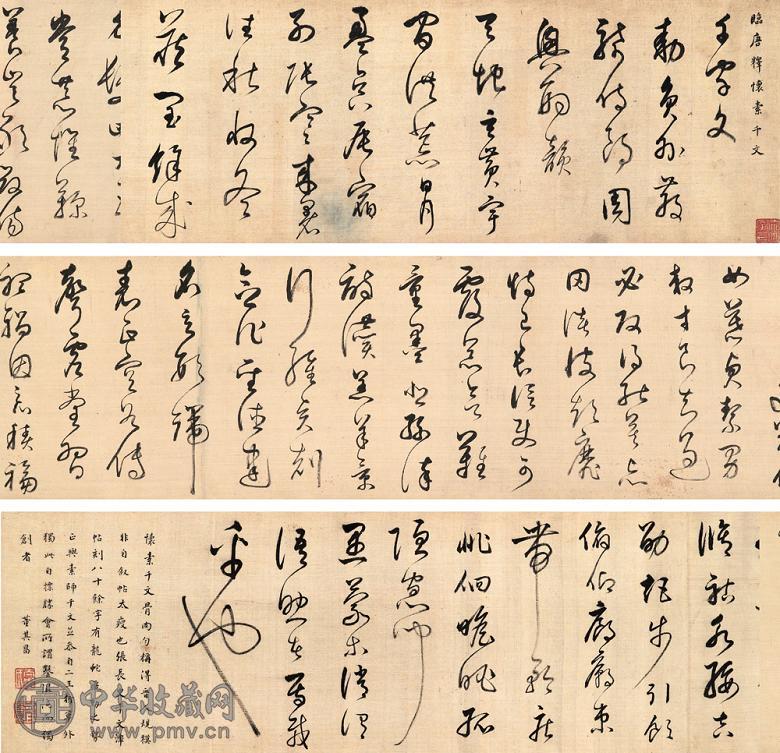 臨唐釋懷素千文
千字文
敕員外散
騎侍郎周
興嗣韻
天地玄黃宇
宙洪荒日月
盈昃辰宿
列張寒來暑
往秋收冬
藏閏餘成
髮四大五
常恭惟鞠
養豈敢毀傷
女慕貞絜男
效才良知過
必改得能莫忘
罔談彼短靡
恃己長信使可
覆器欲難
量墨悲絲染
詩讚羔羊景
行維賢剋
念作聖德建
名立形端
表正空谷傳
聲虛堂習
聽禍因惡積福
脩祜永綏吉
劭矩步引領
俯仰廊廟束
帶矜莊
徘徊瞻眺孤
陋寡聞
愚蒙等誚謂
語助者焉哉
乎也
懷素千文骨肉勻稱得規模
非自叙帖太瘦也張長文澤
帖刻八十餘字有龍蛇
正與素師千文並參自二外
獨此自標勝會所謂獨
創者 董其昌
中华收藏网
www.pmv.cn